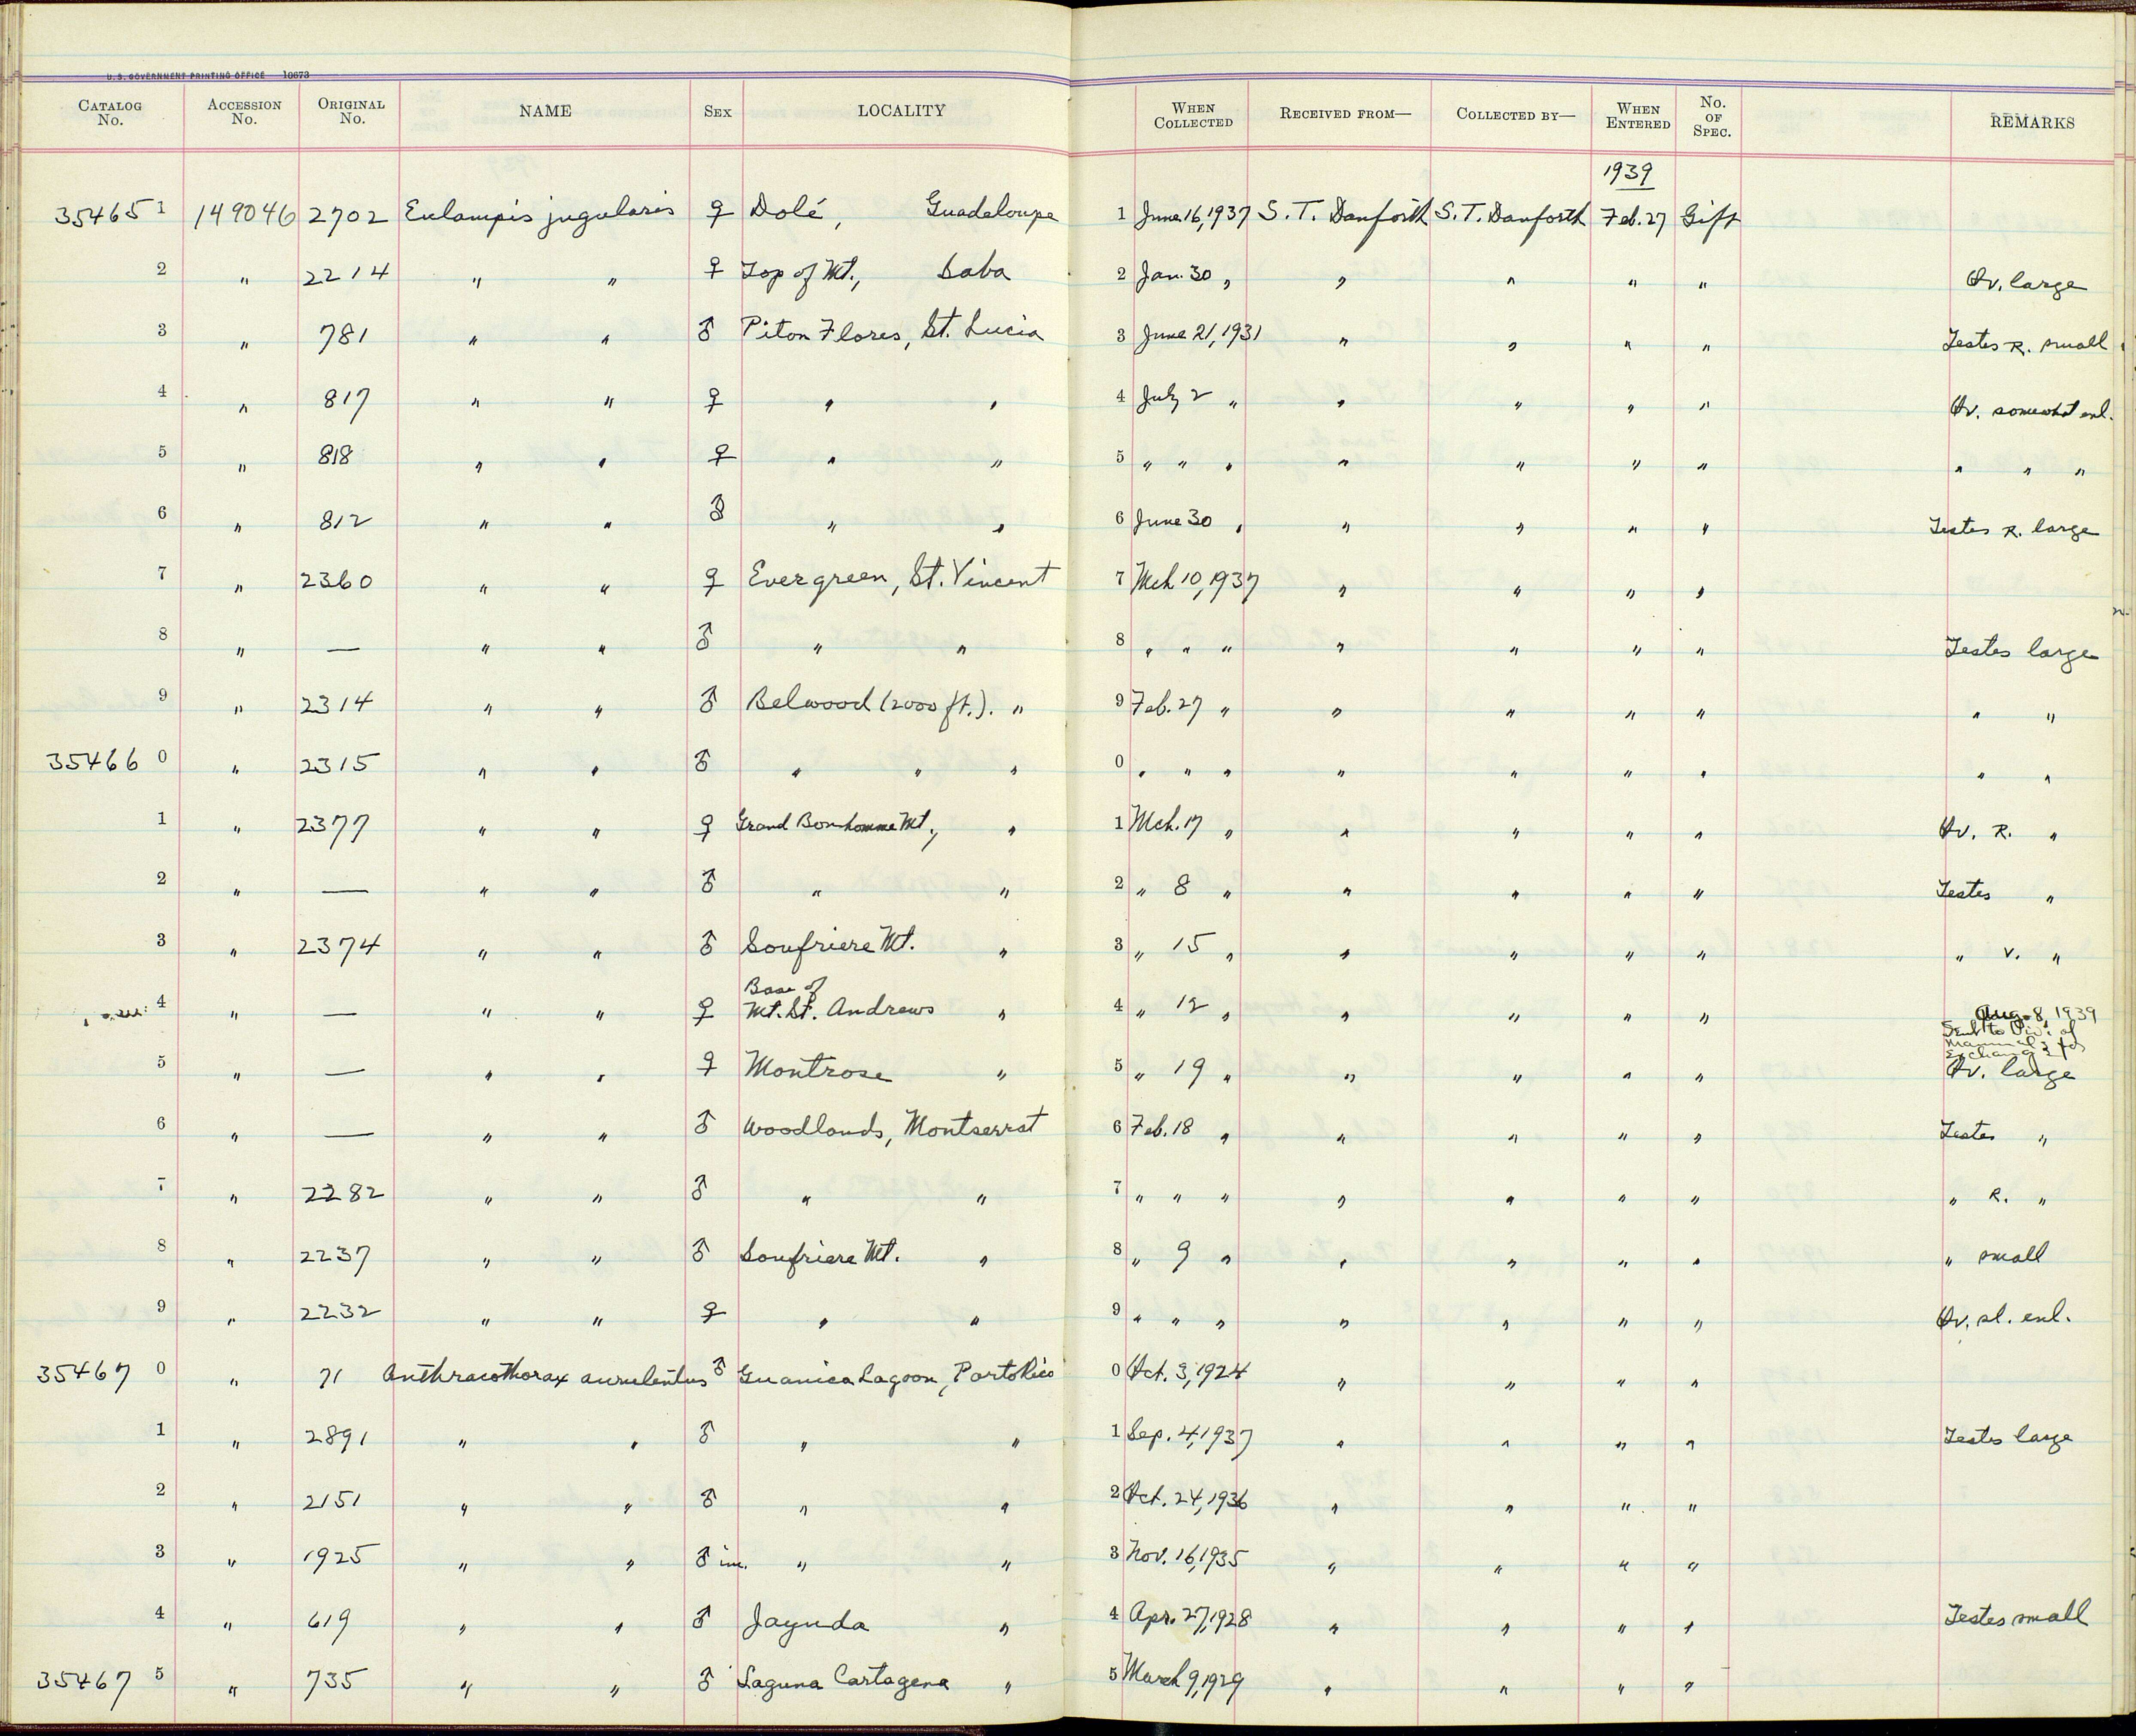 U. S. GOVERNMENT PRINTING OFFICE 10673
CATALOG No. ACCESSION No. ORIGINAL No. NAME SEX LOCALITY WHEN COLLECTED RECEIVED FROM— COLLECTED BY— WHEN ENTERED No. OF SPEC. REMARKS
1939
35465 1 149046 2702 Eulampis jugularis ♀ Dolé, Guadeloupe 1 June 16, 1937 S. T. Danforth S. T. Danforth Feb. 27 Gift
2 " 2214 " " ♀ Top of Mt., Saba 2 Jan. 30 " " " " " Ov. large
3 " 781 " " ♂ Piton Flores, St. Lucia 3 June 21, 1931 " " " " Testes R. small
4 " 817 " " ♀ " " 4 July 2 " " " " " Ov. somewhat enl.
5 " 818 " " ♀ " " 5 " " " " " " " " " "
6 " 812 " " ♂ " " 6 June 30 " " " " " Testes R. large
7 " 2360 " " ♀ Evergreen, St. Vincent 7 Mch 10, 1937 " " " "
8 " — " " ♂ " " 8 " " " " " " " Testes large
9 " 2314 " " ♂ Belwood (2000 ft.). " 9 Feb. 27 " " " " " " "
35466 0 " 2315 " " ♂ " " " 0 " " " " " " " " "
1 " 2377 " " ♀ Grand Bonhomme Mt., " 1 Mch. 17 " " " " " Ov. R. "
2 " — " " ♂ " " 2 " 8 " " " " " Testes "
3 " 2374 " " ♂ Soufriere Mt. " 3 " 15 " " " " " " v. "
4 " — " " ♀ Base of Mt. St. Andrews " 4 " 12 " " " " " Aug. 8, 1939
Sent to Div. of
Mammals for
Exchange
5 " — " " ♀ Montrose " 5 " 19 " " " " " Ov. large
6 " — " " ♂ Woodlands, Montserrat 6 Feb. 18 " " " " " Testes "
7 " 2282 " " ♂ " " 7 " " " " " " " " R. "
8 " 2237 " " ♂ Soufriere Mt. " 8 " 9 " " " " " " small
9 " 2232 " " ♀ " " 9 " " " " " " " Ov. sl. enl.
35467 0 " 71 Anthracothorax aurulentus ♂ Guanica Lagoon, Porto Rico 0 Oct. 3, 1924 " " " "
1 " 2891 " " ♂ " " 1 Sep. 4, 1937 " " " " Testes large
2 " 2151 " " ♂ " " 2 Oct. 24, 1936 " " " "
3 " 1925 " " ♂ im. " " 3 Nov. 16, 1935 " " " "
4 " 619 " " ♂ Jayuda " 4 Apr. 27, 1928 " " " " Testes small
35467 5 " 735 " " ♂ Laguna Cartagena " 5 March 9, 1929 " " " "